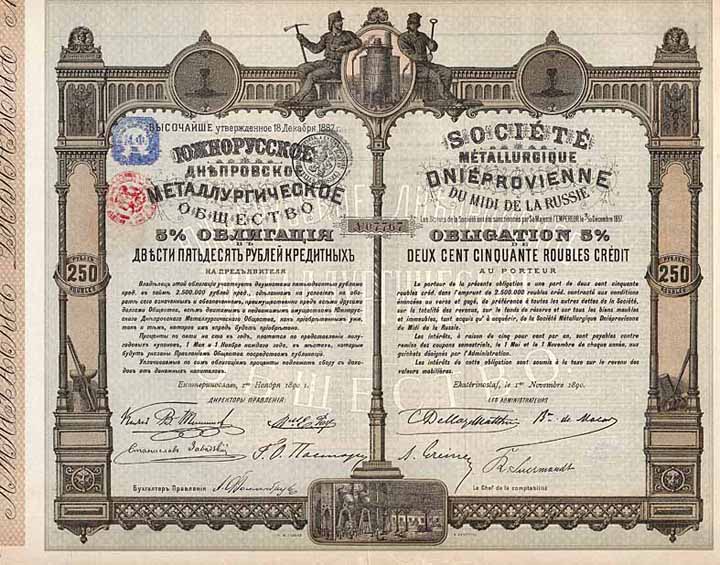 ВЫСОЧАЙШЕ утвержденное 18 Декабря 1887 г.
ЮЖНОРУССКОЕ
ДНѢПРОВСКОЕ
МЕТАЛЛУРГИЧЕСКОЕ
ОБЩЕСТВО
5% ОБЛИГАЦІЯ
ВЪ
ДВѢСТИ ПЯТЬДЕСЯТЬ РУБЛЕЙ КРЕДИТНЫХЪ
НА ПРЕДЪЯВИТЕЛЯ
Владѣлецъ этой облигаціи участвуетъ двумястами пятьюдесятью рублями
кред. въ займѣ 2.500.000 рублей кред., сдѣланномъ на условіяхъ на обо-
ротѣ сего означенныхъ и обезпеченномъ, преимущественно предъ всѣми другими
долгами Общества, всѣмъ движимымъ и недвижимымъ имуществомъ Южнорус-
скаго Днѣпровскаго Металлургическаго Общества, какъ пріобрѣтеннымъ уже,
такъ и тѣмъ, которое имъ впредь будетъ пріобрѣтено.
Проценты по пяти на сто въ годъ, платятся по предъявленіи полу-
годовыхъ купоновъ, 1 Мая и 1 Ноября каждаго года, въ мѣстахъ, которыя
будутъ указаны Правленіемъ Общества посредствомъ публикаціи.
Уплачиваемые по симъ облигаціямъ проценты подлежатъ сбору съ дохо-
довъ отъ денежныхъ капиталовъ.
Екатеринославъ, 1го Ноября 1890 г.
ДИРЕКТОРЫ ПРАВЛЕНІЯ
Бухгалтеръ Правленія
№07767
SOCIÉTÉ
MÉTALLURGIQUE
DNIÉPROVIENNE
DU MIDI DE LA RUSSIE
Les Statuts de la Société ont été sanctionnés par Sa Majesté l'EMPEREUR le 18/30 Décembre 1887.
OBLIGATION 5%
DE
DEUX CENT CINQUANTE ROUBLES CRÉDIT
AU PORTEUR
Le porteur de la présente obligation a une part de deux cent cinquante
roubles créd. dans l'emprunt de 2.500.000 roubles créd. contracté aux conditions
énoncées au verso et gagé, de préférence à toutes les autres dettes de la Société,
sur la totalité des revenus, sur le fonds de réserve et sur tous les biens meubles
et immeubles, tant acquis qu'à acquérir, de la Société Métallurgique Dniéprovienne
du Midi de la Russie.
Les intérêts, à raison de cinq pour cent par an, sont payables contre
remise des coupons semestriels, le 1 Mai et le 1 Novembre de chaque année, aux
guichets désignés par l'Administration.
Les intérêts de cette obligation sont soumis à la taxe sur le revenu des
valeurs mobilières.
Ekatérinoslaf, le 1er Novembre 1890.
LES ADMINISTRATEURS
Le Chef de la comptabilité
РУБЛЕЙ
250
ROUBLES
РУБЛЕЙ
250
ROUBLES